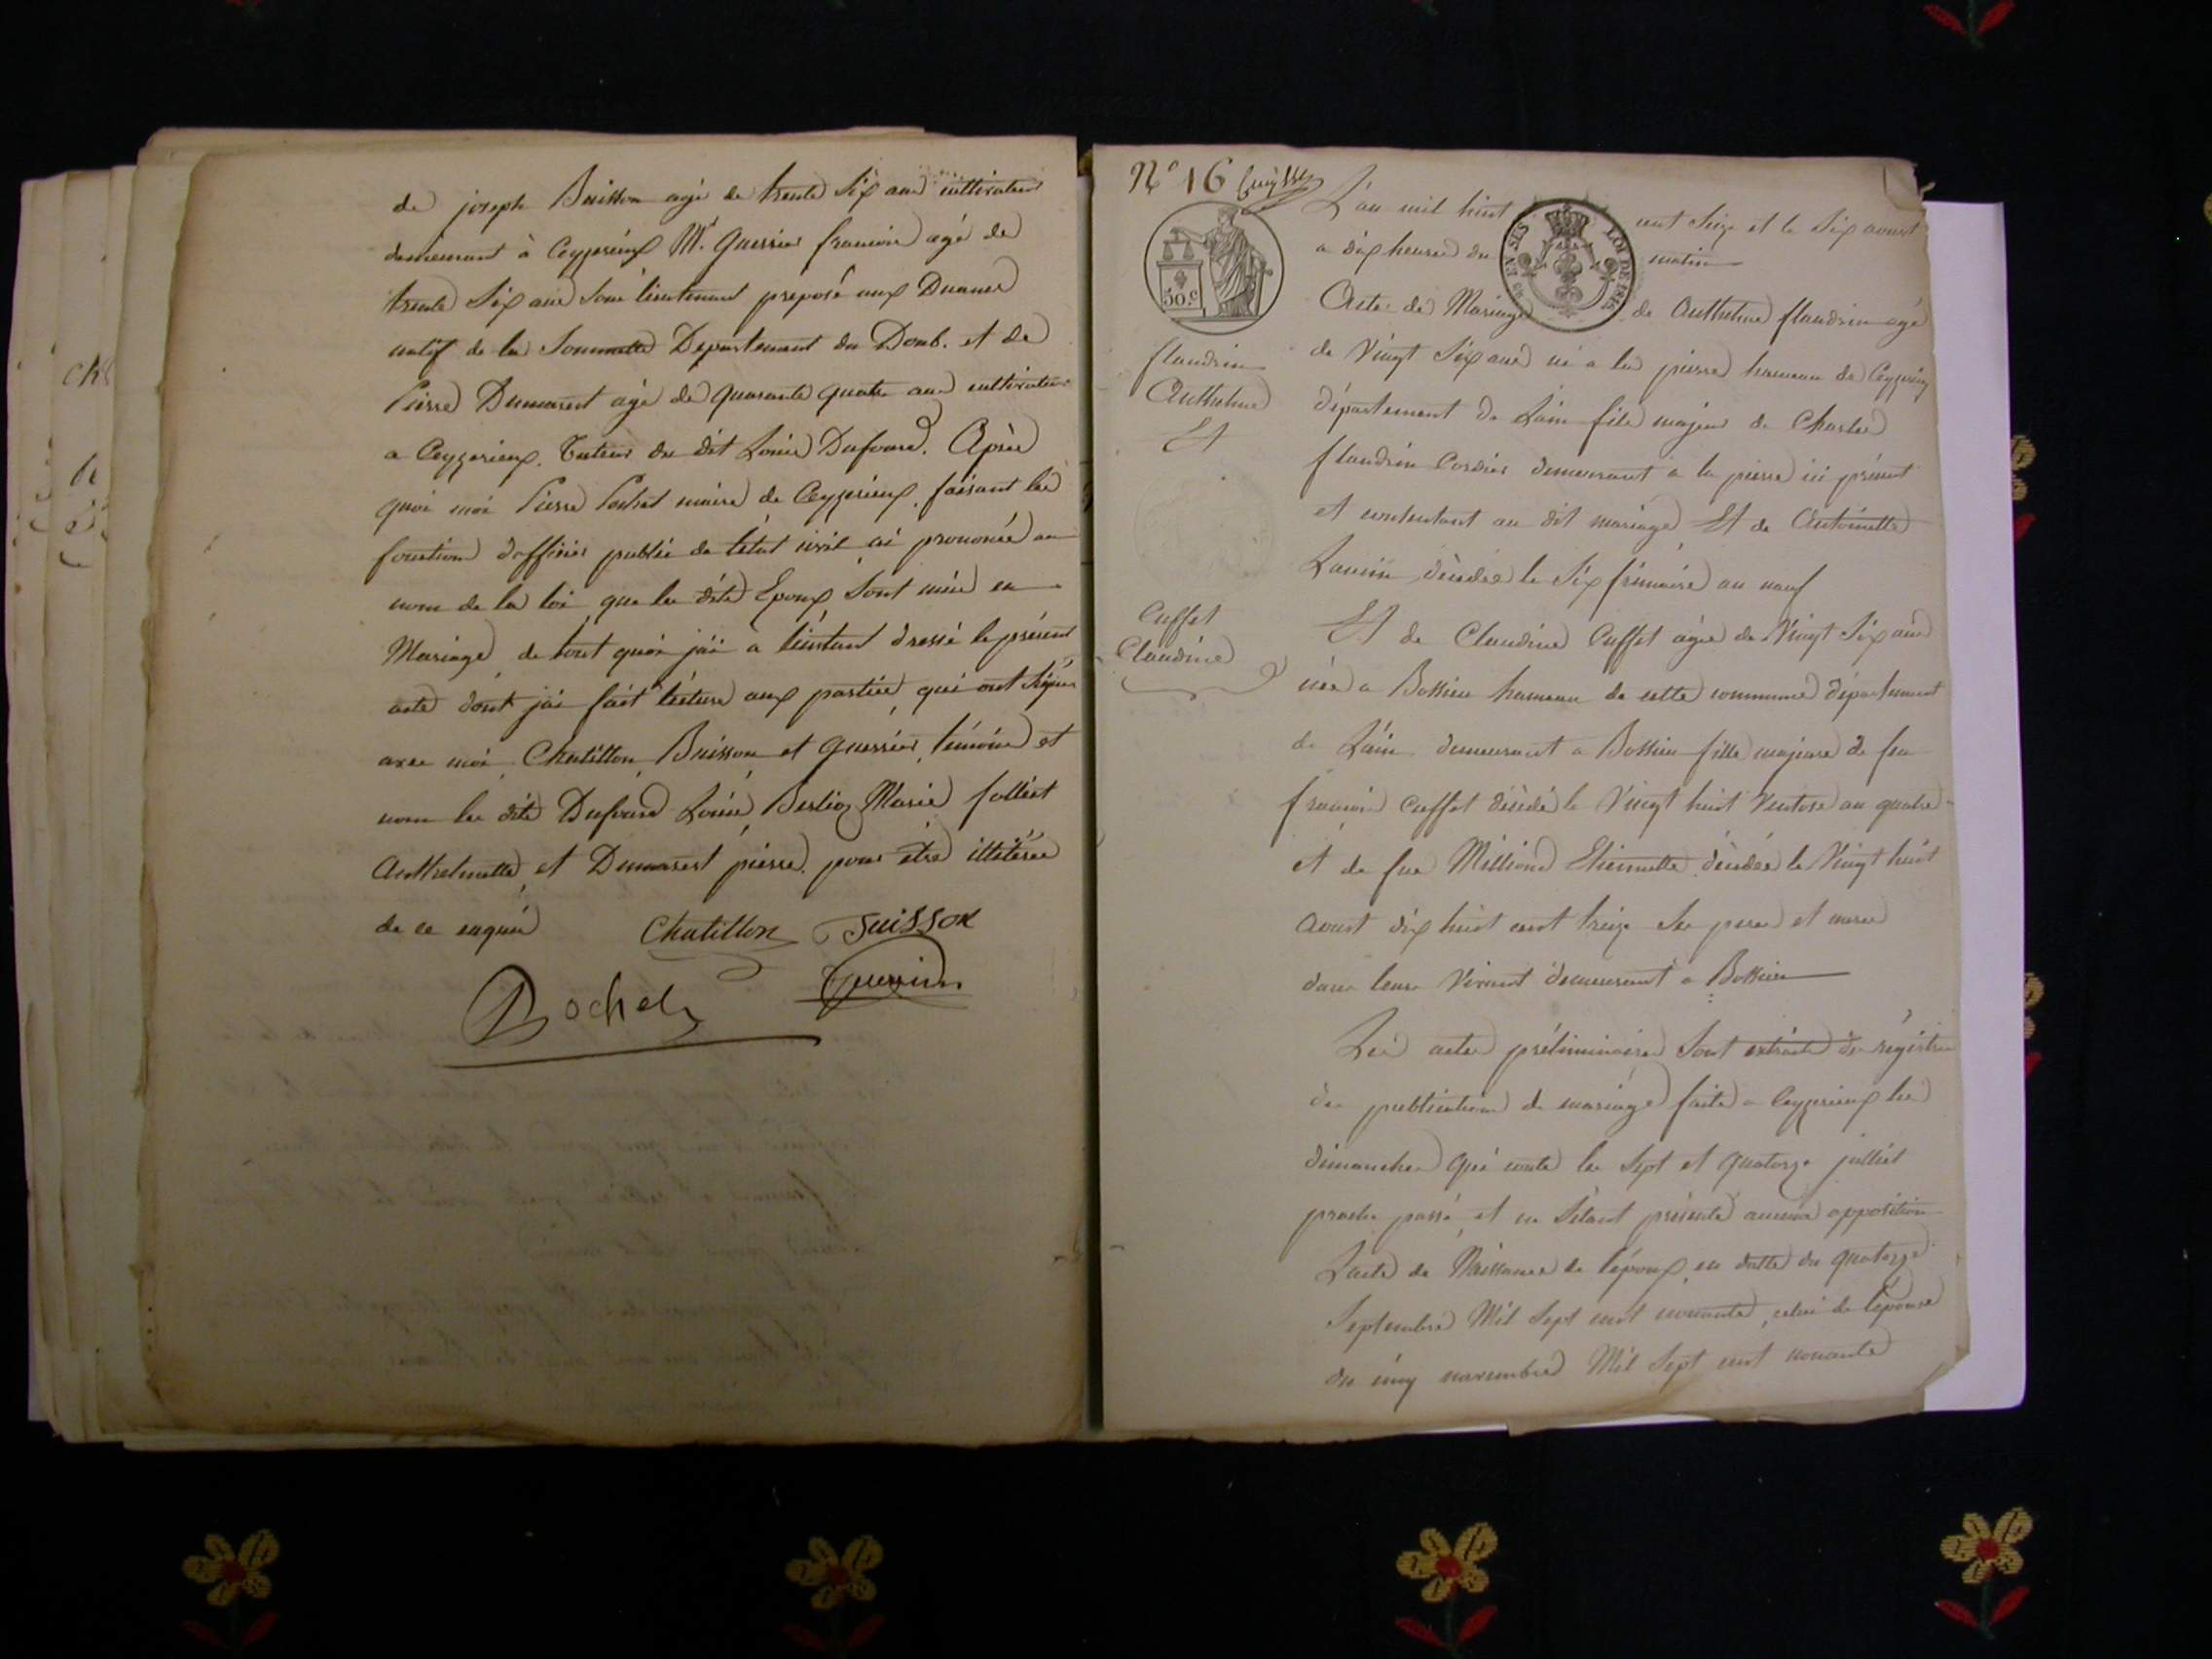 de joseph Buisson agé de trente Six ans cultivateur
demeurant à Ceyzerieux Mr. Guerrier francois agé de
trente Six ans Sous lieutenant preposé aux Duanes
natif de la Sommette Departement du Doub. et de
Pierre Dumarest agé de quarante quatre ans cultivateur
a Ceyzerieux. Tuteur du dit Louis Dufourd. Après
quoi moi Pierre maire de Ceyzerieux faisant les
fonctions d'officier public de l'état civil ai prononcé au
nom de la loi que les dits Epoux Sont unis en
Mariage, de tout quoi j'ai a l'instant dressé le présent
acte dont j'ai fait lecture aux parties, qui ont Signés
avec moi, Chatillon, Buisson et Guerrier, témoins et
non les dits Dufourd Louis, Berlioz Marie follict
Anthelmette, et Dumarest pierre. pour être illiterés
de ce enquis Chatillon Buisson
Guerrier
Rochet
N° 16
L'an mil huit cent Seize et le Six aoust
a dix heures du matin
EN SUS LOI DE 1816
50.c
Acte de Mariage de Anthelme flandrin agé
flandrin
Anthelme
Et
de Vingt Six ans né a la pierre hameau de Ceyzerieux
département de Lain fils majeur de Charles
flandrin Cordier demeurant a la pierre ici présent
et consentant au dit mariage, Et de Antoinette
décédée le Six frimaire an neuf
Cuffet
Claudine
Et de Claudine Cuffet agée de Vingt Six ans
née a Bossieu hameau de cette commune département
de Lain demeurant a Bossieu fille majeure de feu
francois Cuffet décédé le Vingt huit Ventose an quatre
et de feue Milliond Etiennette, décédée le Vingt huit
Aoust dix huit cent treize Ses pere et mere
dans leurs Vivant demeurant a Bossieu
Les actes préliminaires Sont extraits des régistres
des publications de mariage faites a Ceyzerieux les
dimanches qui conte les Sept et quatorze julliet
proche passé, et ne S'étant présenté aucune opposition
L'acte de Naissance de l'époux en datte du quatorze
Septembre Mil Sept cent nonante, celui de l'épouse
du cinq novembre Mil Sept cent nonante